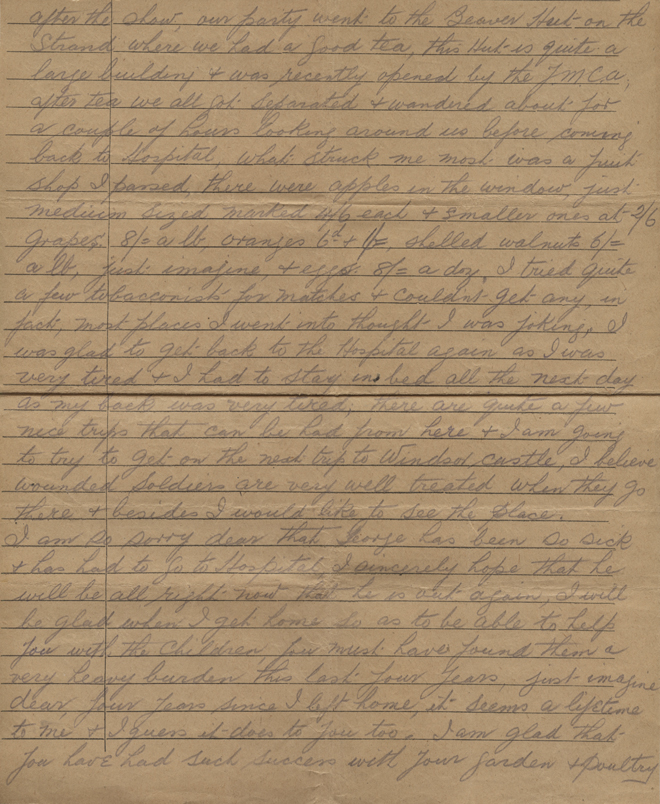 after the show, our party went to the Beaver Hut on the
Strand where we had a good tea, this Hut is quite a
large building & was recently opened by the Y.M.C.a,
after tea we all got separated & wandered about for
a couple of hours looking around us before coming
back to Hospital, what struck me most was a fruit
shop I passed, there were apples in the window, just
medium sized marked 4/6 each & smaller ones at 2/6
Grapes, 8/= a lb, oranges 6d & 1/=, shelled walnuts 6/=
a lb, just imagine, & eggs 8/= a doz, I tried quite
a few tobacconists for matches & couldnt get any, in
fact, most places I went into thought I was joking, I
was glad to get back to the Hospital again as I was
very tired & I had to stay in bed all the next day
as my back was very tired, there are quite a few
nice trips that can be had from here & I am going
to try to get on the next trip to Windsor castle, I believe
wounded soldiers are very well treated when they go
there & besides I would like to see the place.
I am so sorry dear that George has been so sick
& has had to go to Hospital, I sincerely hope that he
will be all right now that he is out again, I will
be glad when I get home so as to be able to help
you with the Children you must have found them a
very heavy burden this last four years, just imagine
dear, four years since I left home, it seems a lifetime
to me & I guess it does to you too. I am glad that
you have had such success with your garden & poultry